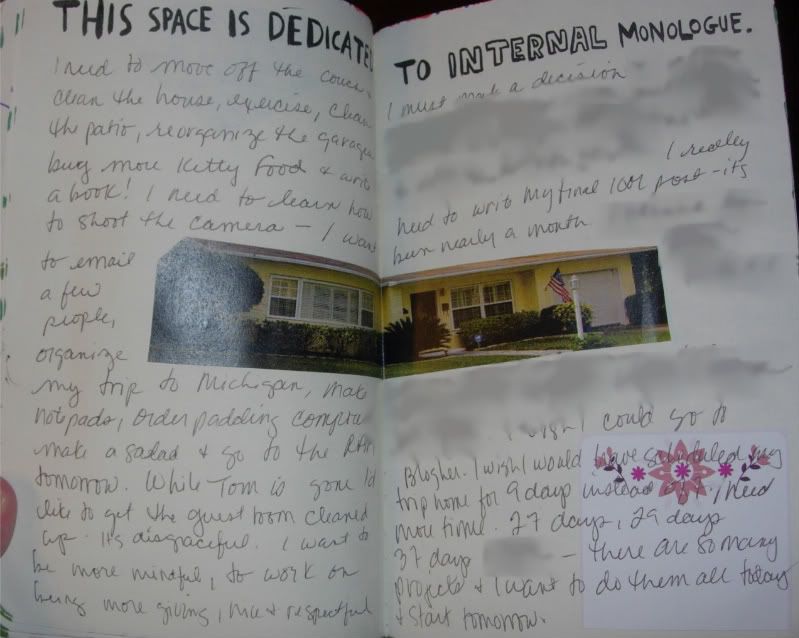 THIS SPACE IS DEDICATED
I need to move off the couch &
clean the house, exercise, clean
the patio, reorganize the garage
buy more Kitty Food & write
a book! I need to learn how
to shoot the camera – I want
to email
a few
people,
organize
my trip to Michigan, make
notepads, order padding
make a salad & go to the
tomorrow. While Tom is gone I'd
like to get the guest room cleaned
up. It's disgraceful. I want to
be more mindful, to work on
being more giving, nice & respectful
TO INTERNAL MONOLOGUE.
I must make a decision
I really
need to write my final 1001 post – its
been nearly a month
I wish I could go to
Blogher. I wish I would have scheduled my
trip home for 9 days instead of 7, I need
more time. 27 days, 29 days
37 days – there are so many
projects & I want to do them all today
& start tomorrow.